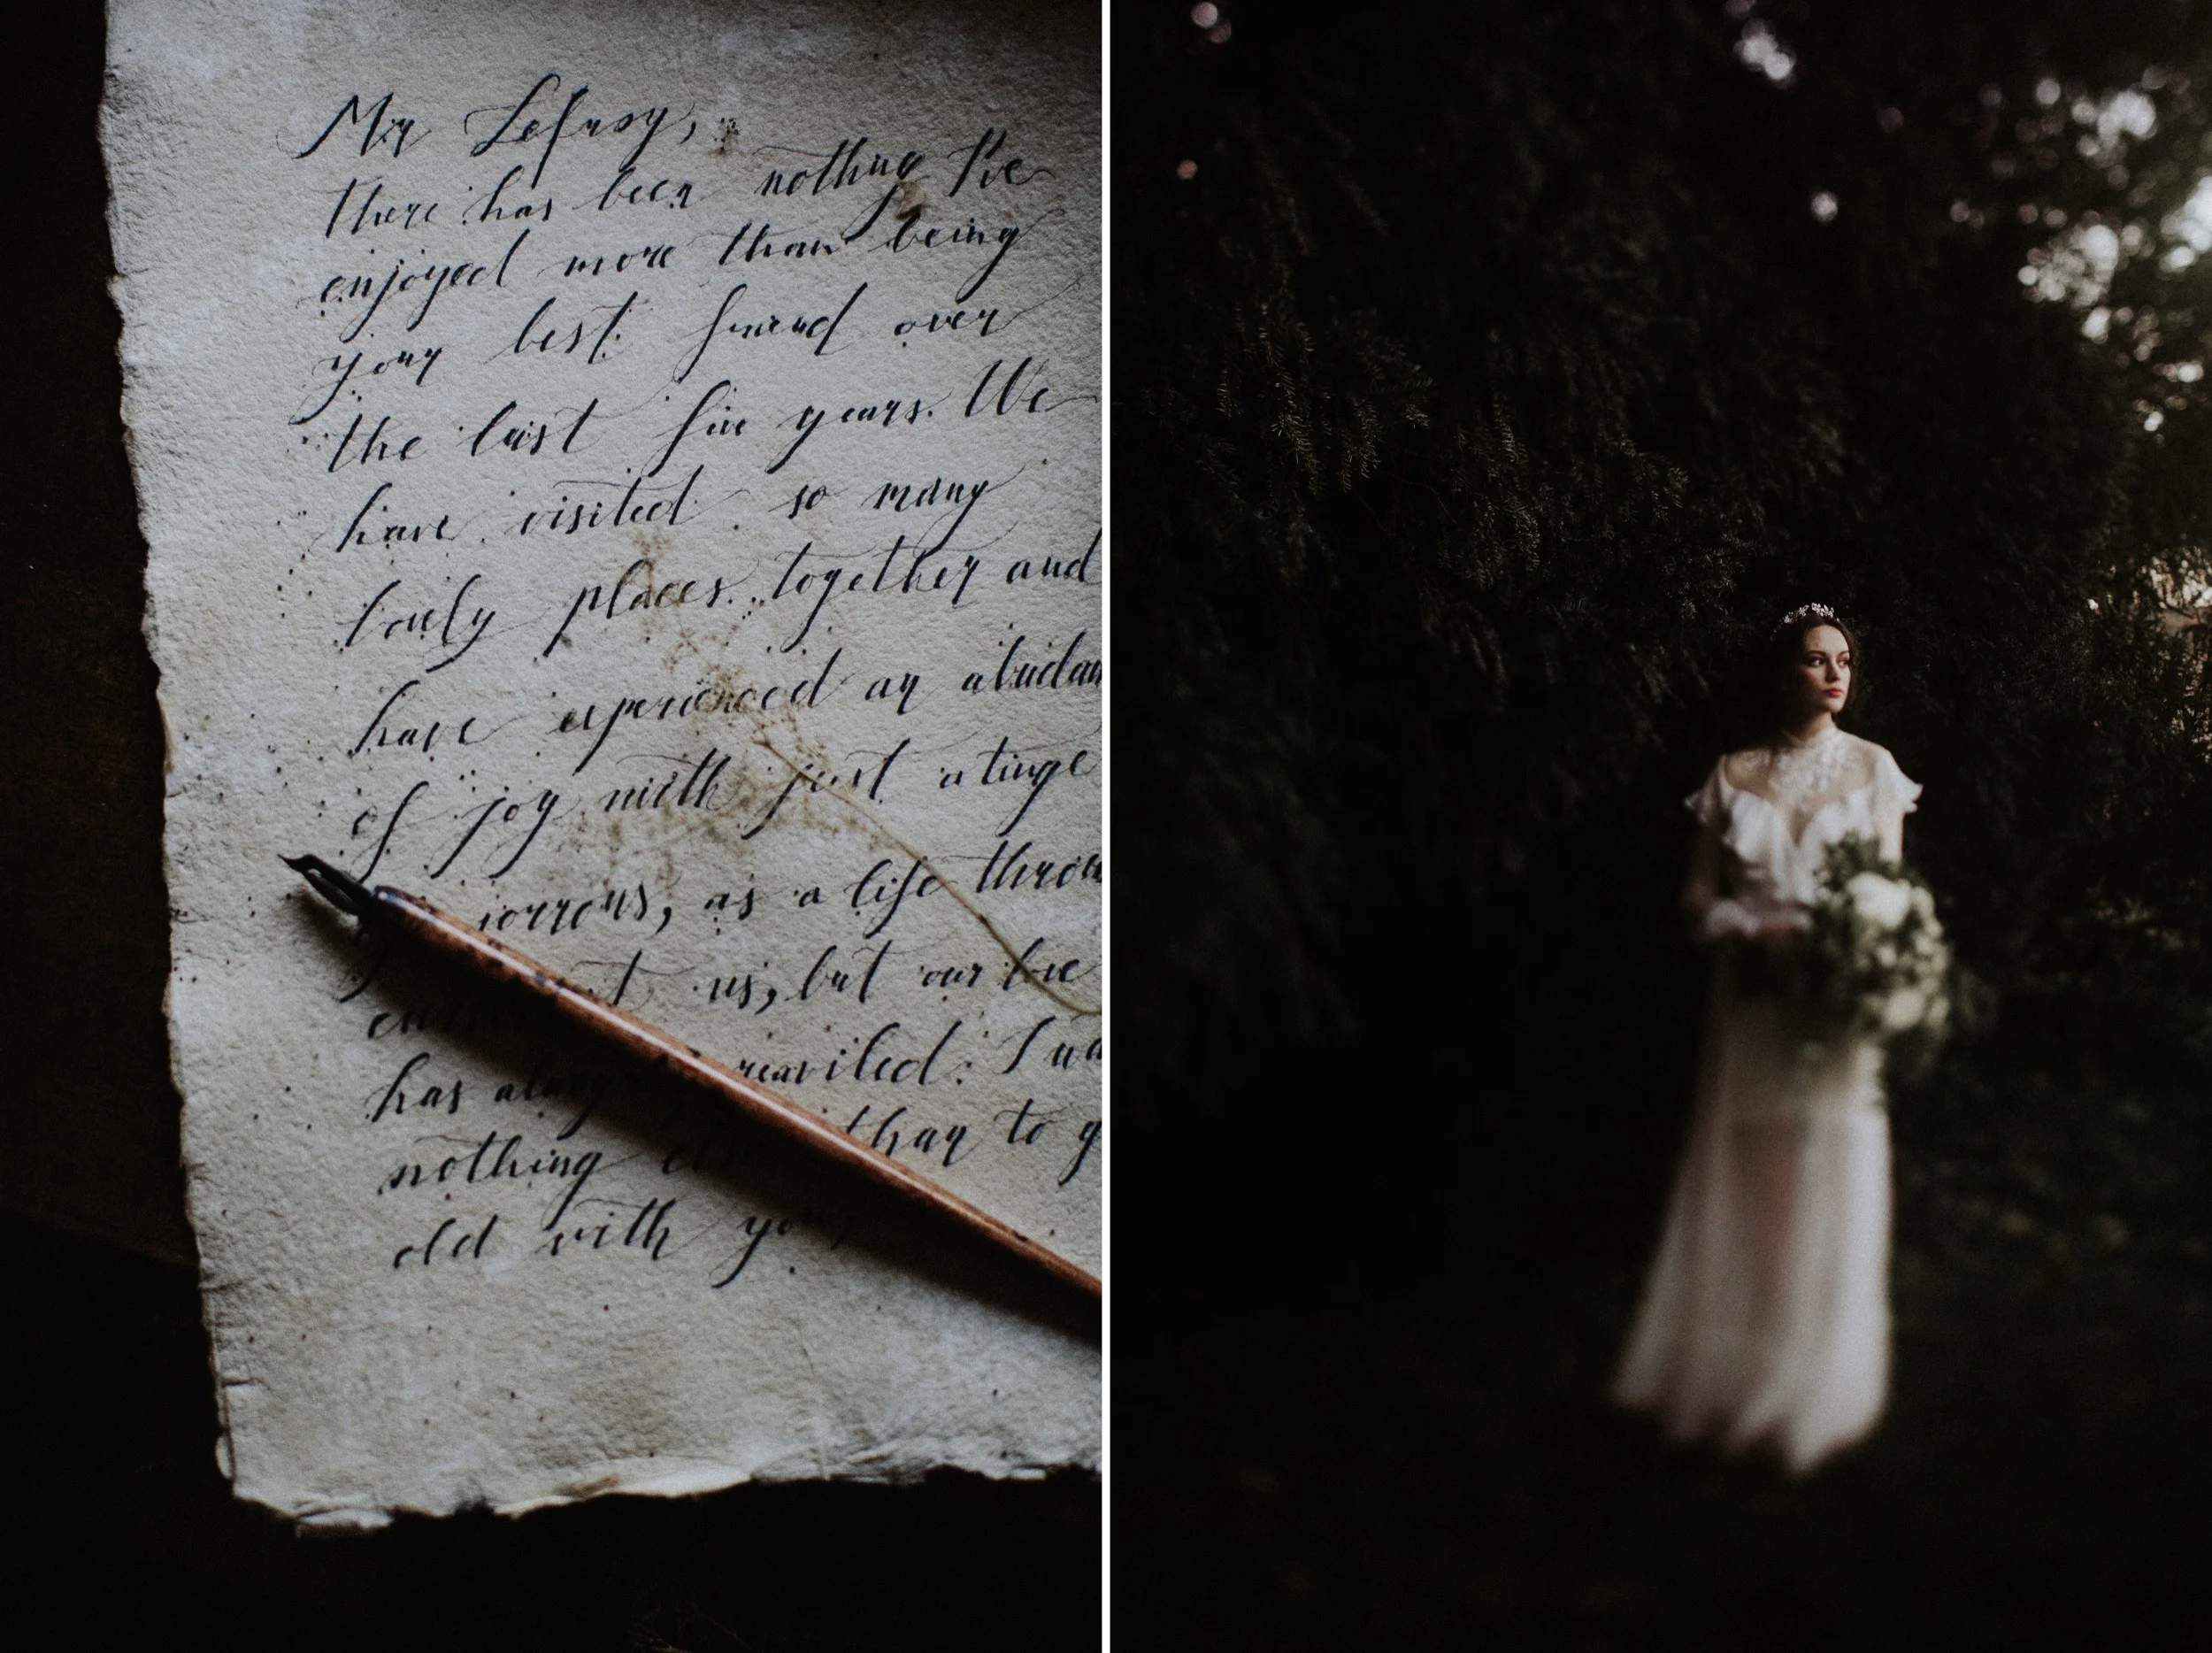 Mr Lefroy,
there has been nothing I've
enjoyed more than being
your best friend over
the last five years. We
have visited so many
lovely places together and
have experienced an abudan
of joy with just a tinge
sorrows, as a life throw
us, but our love
has alway reaviled. I wa
nothing else than to g
old with you,